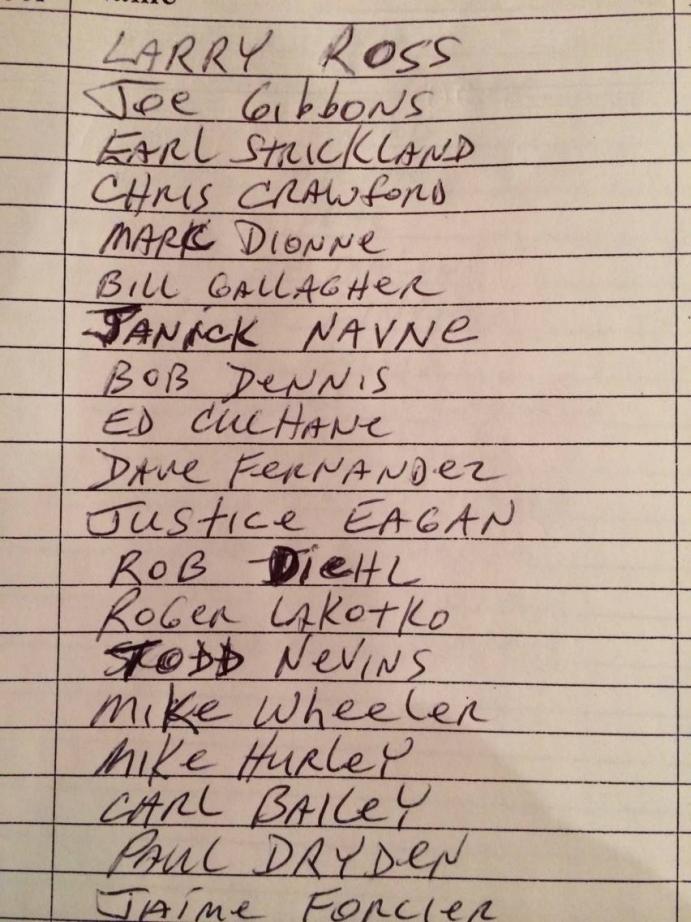 LARRY ROSS
JOE GibbONS
EARL STRICKLAND
CHRIS CRAWFORD
MARK DIONNe
BILL GALLAGHeR
JANICK NAVNe
BOB DeNNIS
ED CULHANe
DAVe FeRNANDez
JUStice EAGAN
ROB DieHL
ROGeR LAKOtKO
TODD NeVINS
MiKe WheeLeR
MiKe HURLeY
CARL BAILeY
PAUL DRYDeN
JAime FORCIeR